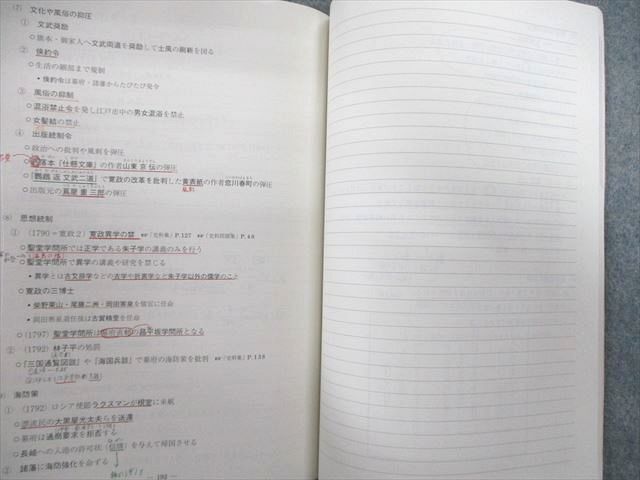 (7) 文化や風俗の抑圧
① 文武奨励
○旗本・御家人へ文武両道を奨励して士風の刷新を図る
② 倹約令
○生活の細部まで規制
・倹約令は幕府・諸藩からたびたび発令
③ 風俗の抑制
○混浴禁止令を発し江戸市中の男女混浴を禁止
○女髪結の禁止
④ 出版統制令
○政治への批判や風刺を弾圧
落本『仕懸文庫』の作者山東京伝の弾圧
○『鸚鵡返文武二道』で寛政の改革を批判した黄表紙の作者恋川春町の弾圧
○出版元の蔦屋重三郎の弾圧
(8) 思想統制
① (1790=寛政2) 寛政異学の禁 『史料集』P.127 『史料問題集』P.48
○聖堂学問所では正学である朱子学の講義のみを行う
○聖堂学問所で異学の講義や研究を禁じる
・異学とは古文辞学などの古学や折衷学など朱子学以外の儒学のこと
○寛政の三博士
・柴野栗山・尾藤二洲・岡田寒泉を儒官に任命
・岡田寒泉退任後は古賀精里を任命
○(1797) 聖堂学問所は幕府直轄の昌平坂学問所となる
② (1792) 林子平の処罰
○『三国通覧図説』や『海国兵談』で幕府の海防策を批判 『史料集』P.138
海防策
① (1792) ロシア使節ラクスマンが根室に来航
○漂流民の大黒屋光太夫らを送還
○幕府は通商要求を拒否する
○長崎への入港の許可状(信牌)を与えて帰国させる
② 諸藩に海防強化を命ずる